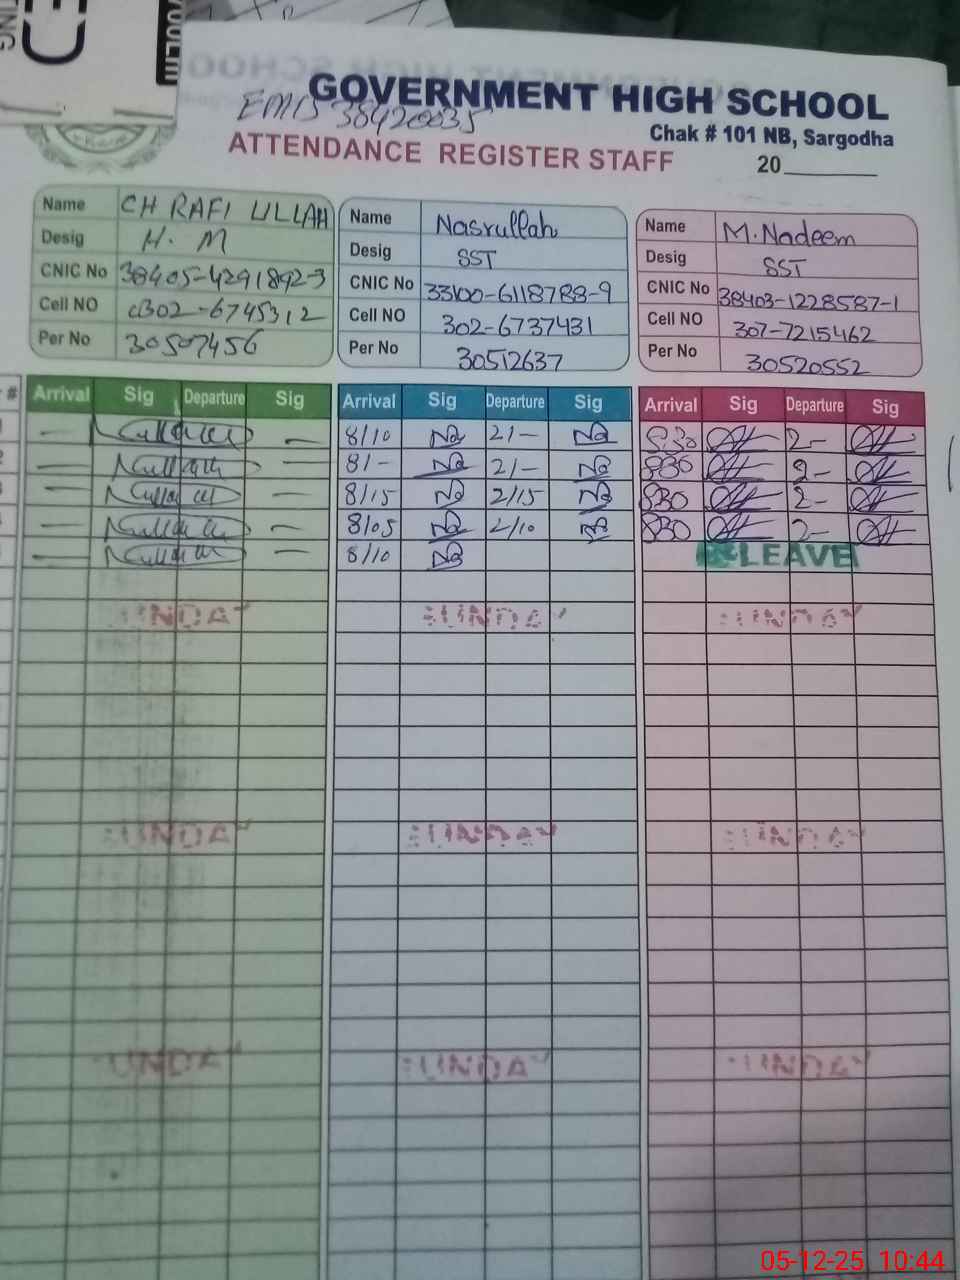 GOVERNMENT HIGH SCHOOL
EMIS 38420035
Chak # 101 NB, Sargodha
ATTENDANCE REGISTER STAFF
20
Name CH RAFI ULLAH
Desig H. M
CNIC No 38405-4291892-3
Cell NO 0302-6745312
Per No 30507456
Name Nasrullah
Desig SST
CNIC No 33100-6118788-9
Cell NO 302-6737431
Per No 30512637
Name M. Nadeem
Desig SST
CNIC No 38403-1228587-1
Cell NO 307-7215462
Per No 30520552
# Arrival Sig Departure Sig Arrival Sig Departure Sig Arrival Sig Departure Sig
8/10 2/- 830 2-
8/- 2/- 830 2-
8/15 2/15 830 2-
8/05 2/10 830 2-
8/10 LEAVE
SUNDAY SUNDAY SUNDAY
SUNDAY SUNDAY SUNDAY
SUNDAY SUNDAY SUNDAY
05-12-25 10:44